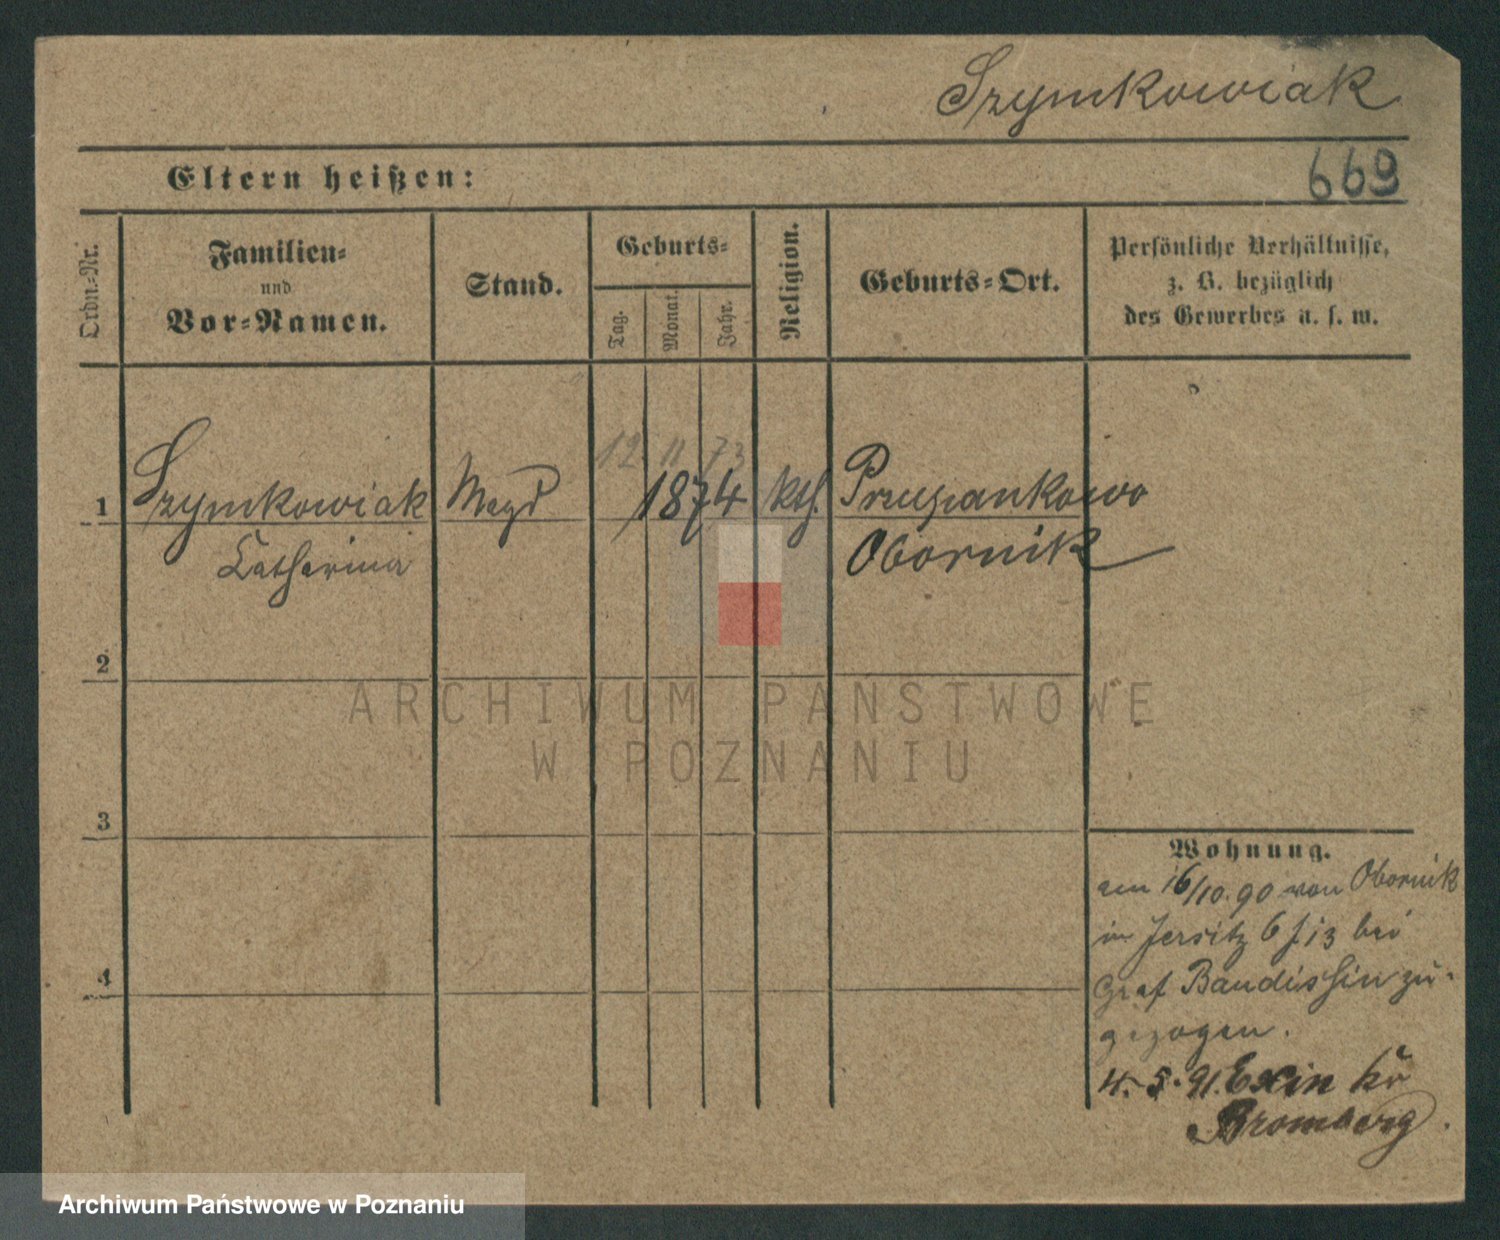 Szymkowiak
Eltern heißen:
669
Ordn.-Nr.
Familien-
und
Vor-Namen.
Stand.
Geburts-
Tag.
Monat.
Jahr.
Religion.
Geburts-Ort.
Persönliche Verhältnisse,
z. B. bezüglich
des Gewerbes u. s. w.
12 11 73
1 Szymkowiak Magd 1874 kth.
Catharina
Obornik
2
3
4
Wohnung.
am 16/10.90 von Obornik
in Jersitz bei
Graf Baudissin zu-
gezogen.
4.5.91. Exin kr
Bromberg.
ARCHIWUM PAŃSTWOWE
W POZNANIU
Archiwum Państwowe w Poznaniu